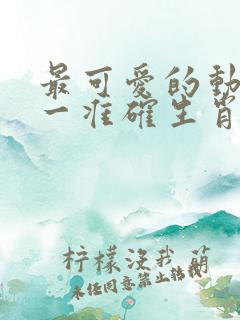 最可爱的動
一准確生肖
柠檬没我萌
未经同意禁止转载